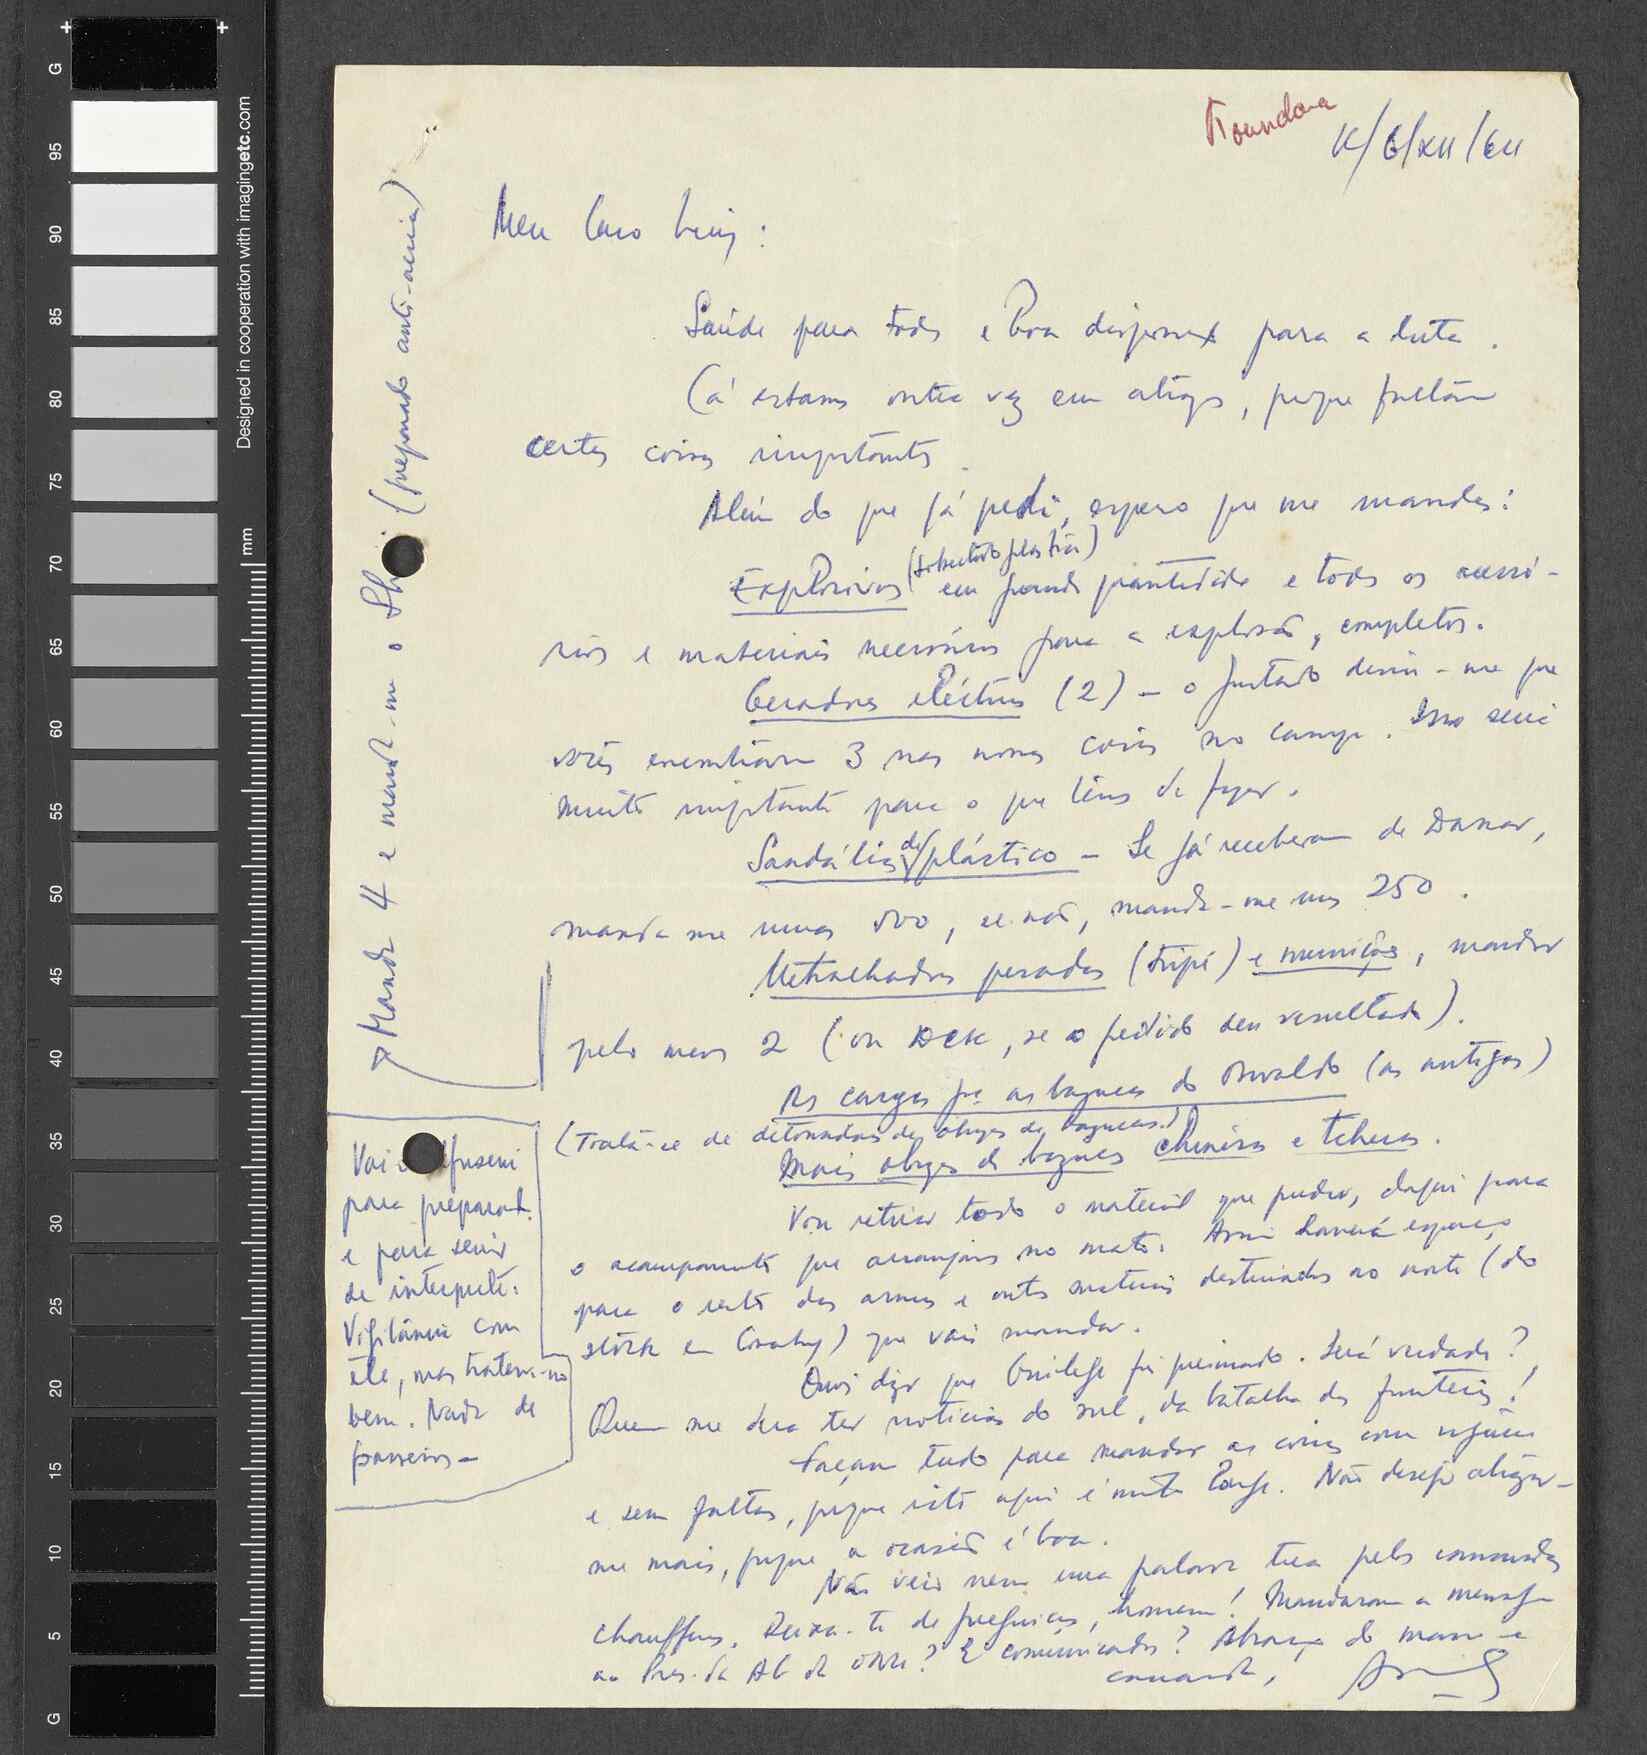 K/6/XII/64
Meu Caro Luiz:
Saúde para todos e boa disposição para a luta.
Cá estamos outra vez em atrazo, porque faltam
certas coisas importantes.
Além do que já pedi, espero que me mandes:
Explosivos em grande quantidade e todos os acessó-
rios e materiais necessários para a explosão, completos.
Geradores eléctricos (2) - o Furtado disse-me que
vocês encontraram 3 nas nossas coisas no campo. Isso será
muito importante para o que temos de fazer.
Sandálias de plástico - Se já receberam de Dakar,
manda-me umas 500, se não, manda-me umas 250.
Metralhadoras pesadas (tripé) e munições, mandar
pelo menos 2 (ou DCK, se o pedido deu resultado).
As cargas pª as bazucas do Osvaldo (as antigas)
(Trata-se de detonadores de obuzes de bazucas.)
Mais obuzes de bazucas chinesas e tchecas.
Vou retirar todo o material que puder, daqui para
o acampamento que arranjámos no mato. Assim haverá espaço
para o resto das armas e outros materiais destinados ao norte (do
stock em Conakry) que vais mandar.
Ouvi dizer que Guileje foi queimado. Será verdade?
Quem me dera ter notícias do sul, da batalha das fronteiras!
Façam tudo para mandar as coisas com urgência
e sem faltas, porque isto aqui é muito longe. Não desejo atrazar-
me mais, porque a ocasião é boa.
Não veio nem uma palavra tua pelos camaradas
chauffeurs. Deixa-te de preguiças, homem! Mandaram a mensagem
ao Pres. da AG da ONU? E comunicados? Abraço do mano e
camarada,
Manda 4 e manda-me o (preparado anti-aéria)
Vai
para preparad.
e para servir
de intérprete.
Vigilância com
ele, mas tratem-no
bem. Nada de
passeios-